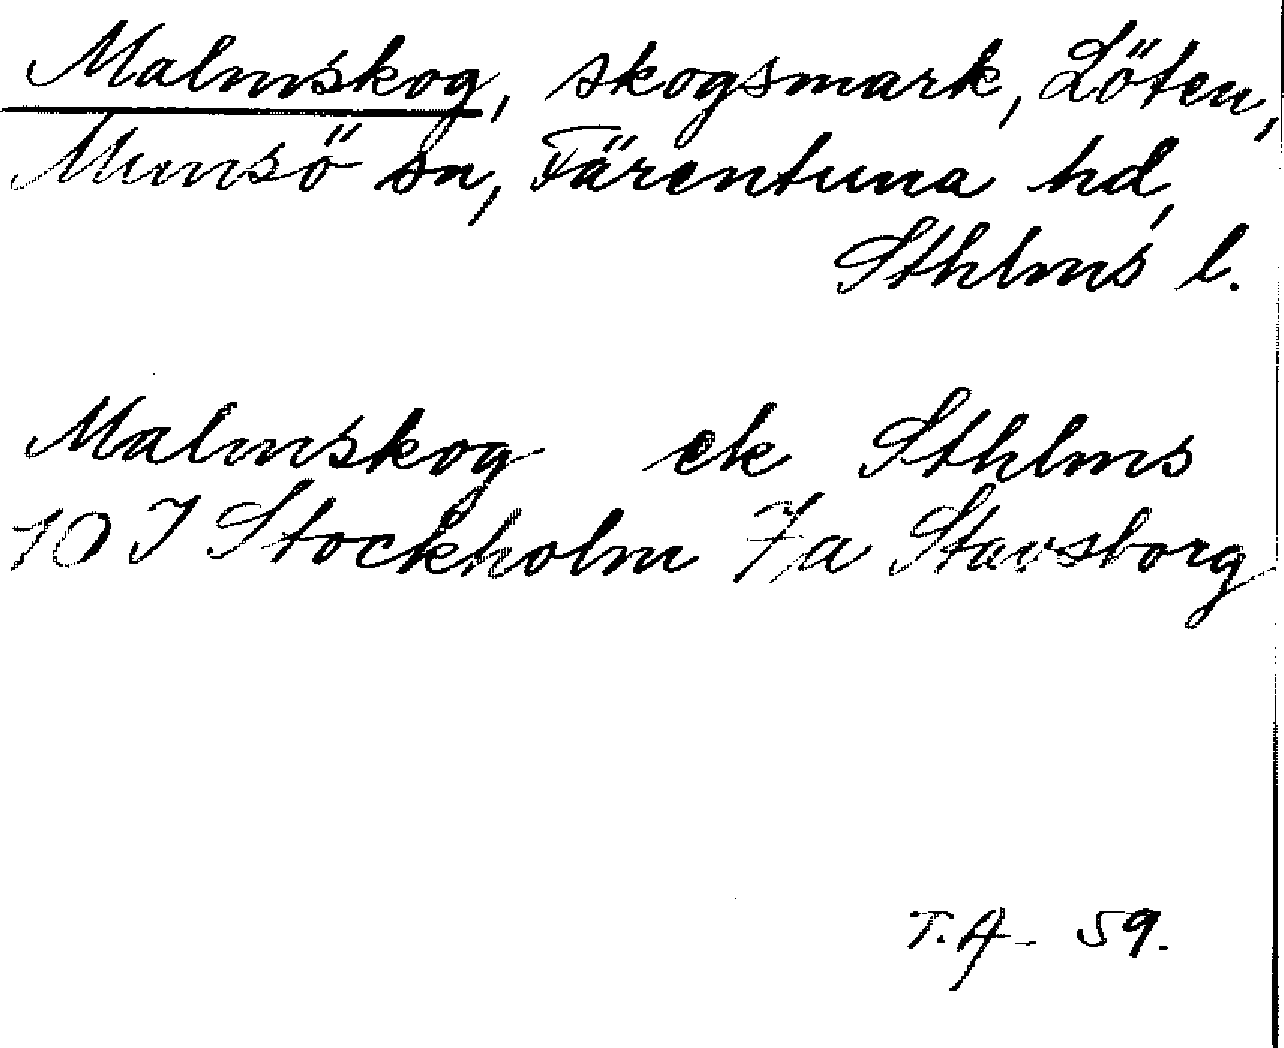 Malmskog, skogsmark, Löten,
Munsö sn, Färentuna hd,
Sthlms l.
Malmskog ek Sthlms
10 I Stockholm 7a Stavsborg
T.A. 59.